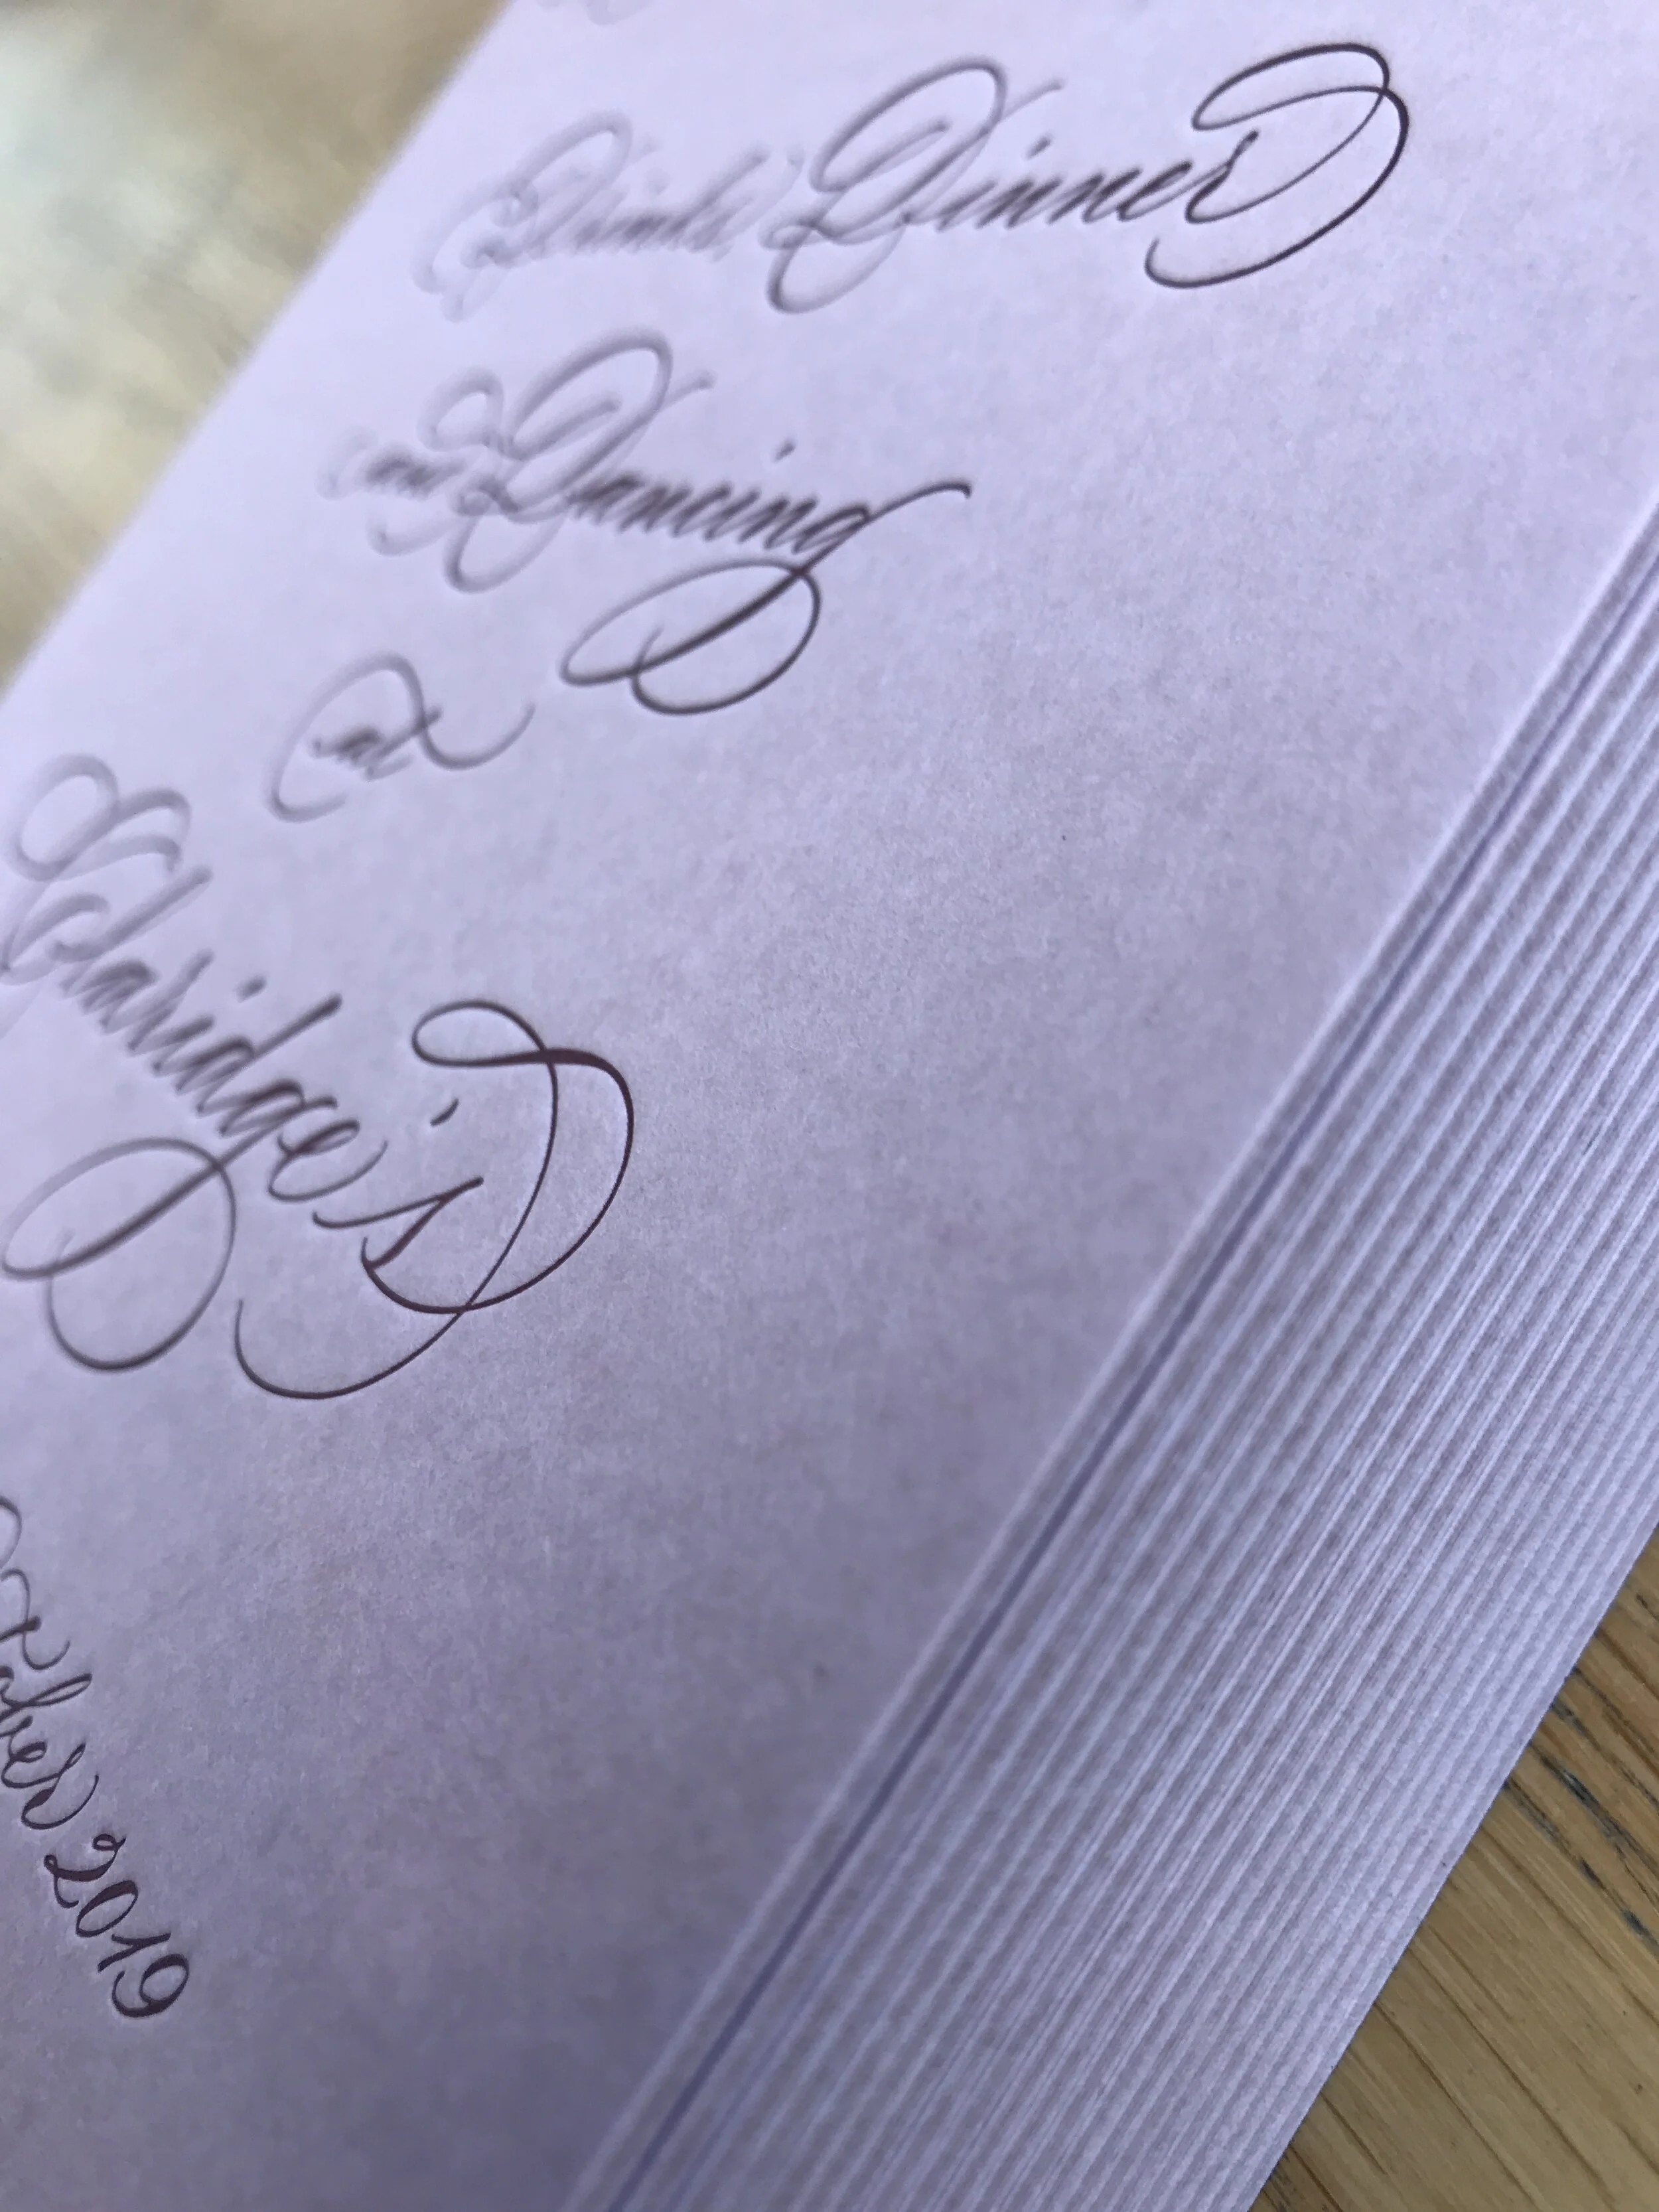 Drinks, Dinner
and Dancing
at
Claridge's
October 2019